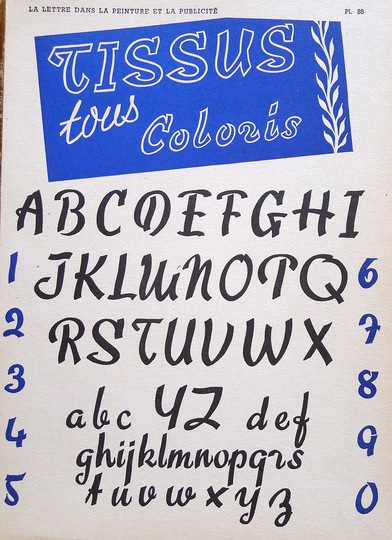 LA LETTRE DANS LA PEINTURE ET LA PUBLICITÉ
PL. 25
TISSUS
tous
Coloris
ABCDEFGHI
JKLMNOPQ
RSTUVWX
abc YZ def
ghijklmnopqrs
tuvwxyz
1
2
3
4
5
6
7
8
9
0